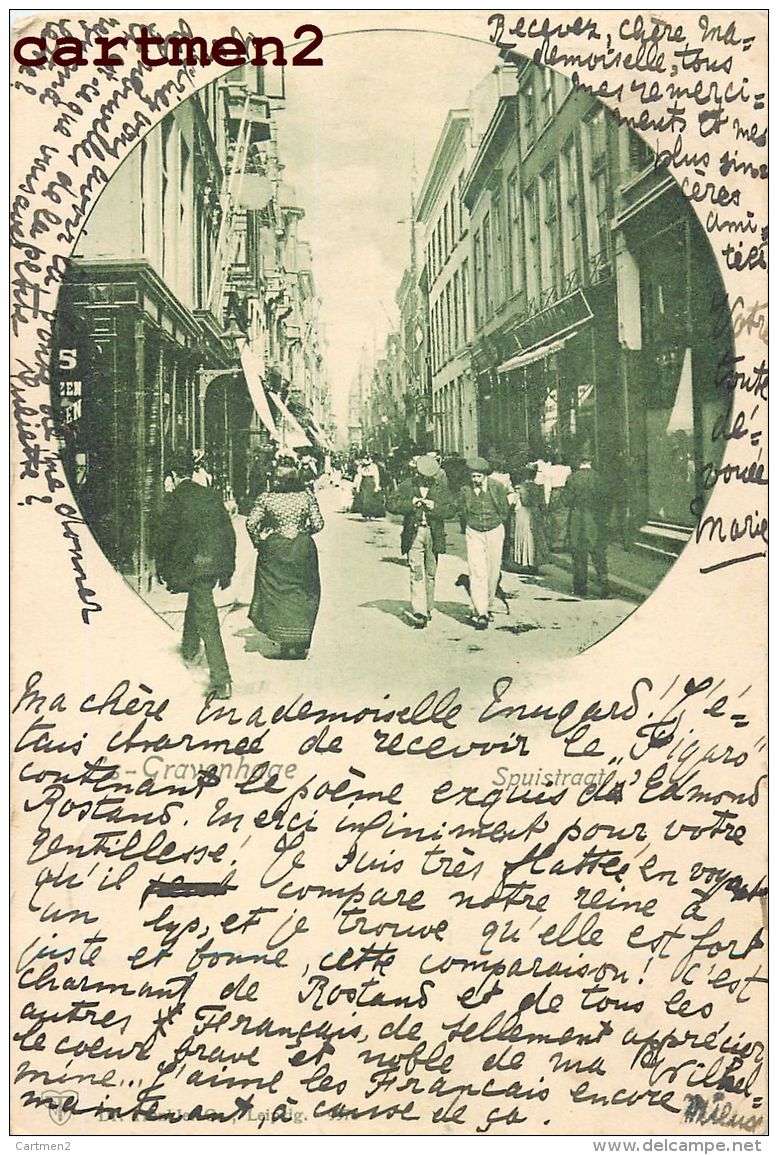 cartmen2
Recevez, chère Ma-
demoiselle, tous
mes remerci-
ments et mes
plus sin-
cères
ami-
tiés
Votre
toute
dé-
vouée
Marie
des nouvelles de la petite Juliette?
est-ce que vous
S
's-Gravenhage
Spuistraat
Ma chère Mademoiselle Enugard! J'é-
tais charmée de recevoir le "Figaro"
contenant le poème exquis de Edmond
Rostand. Merci infiniment pour votre
gentillesse! Je suis très flattée en voyant
qu'il compare notre reine à
un lys, et je trouve qu'elle est fort
juste et bonne, cette comparaison! C'est
charmant de Rostand et de tous les
autres Français, de tellement apprécier
le coeur brave et noble de ma Wilhel-
mine... J'aime les Français encore mieux
maintenant, à cause de ça.
Leipzig.
Cartmen2
www.delcampe.net